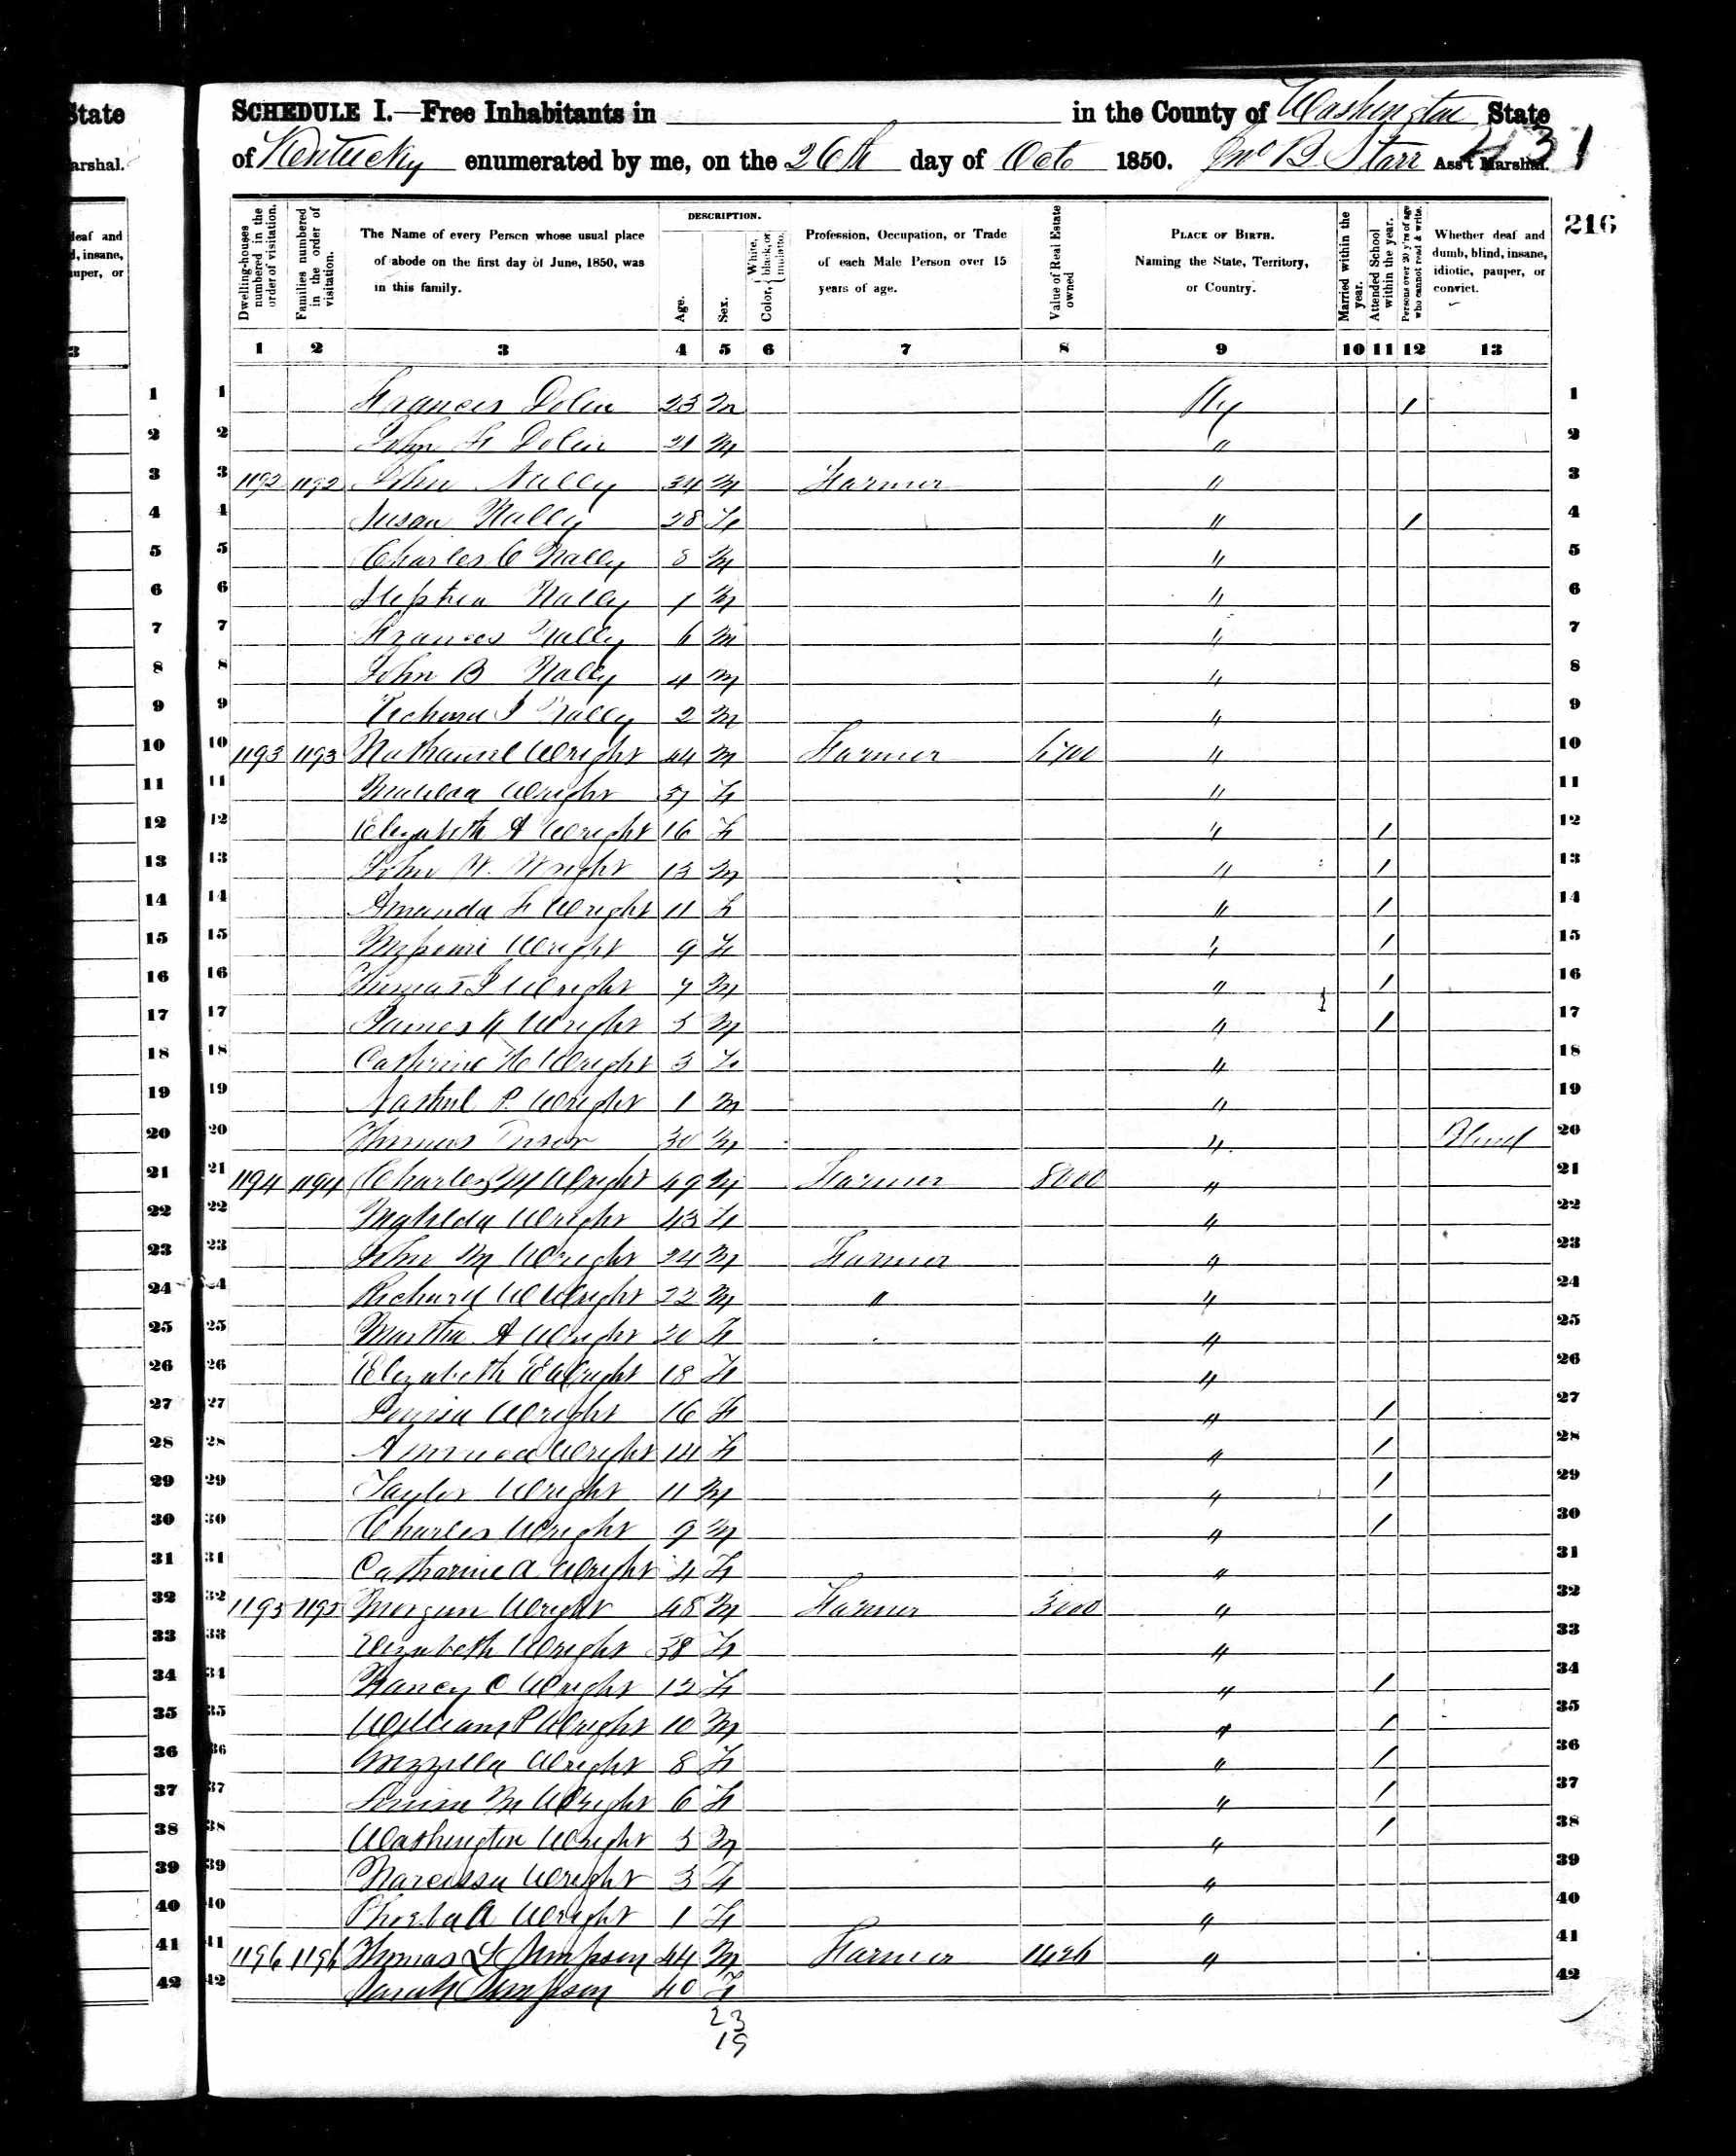 State
arshal.
deaf and
d, insane,
auper, or
3
SCHEDULE I.—Free Inhabitants in in the County of Washington State
of Kentucky enumerated by me, on the 26th day of Octo 1850. Jno B. Starr Ass't Marshal.
431
216
Dwelling-houses numbered in the order of visitation.
Families numbered in the order of visitation.
The Name of every Person whose usual place of abode on the first day of June, 1850, was in this family.
DESCRIPTION.
Age.
Sex.
Color, White, black, or mulatto.
Profession, Occupation, or Trade of each Male Person over 15 years of age.
Value of Real Estate owned
PLACE OF BIRTH. Naming the State, Territory, or Country.
Married within the year.
Attended School within the year.
Persons over 20 y'rs of age who cannot read & write.
Whether deaf and dumb, blind, insane, idiotic, pauper, or convict.
1 2 3 4 5 6 7 8 9 10 11 12 13
1 Frances Dolin 23 M Ky / 1
2 John F Dolin 21 M " 2
3 1192 1192 John Nally 34 M Farmer " 3
4 Susan Nally 28 F " / 4
5 Charles C Nally 8 M " 5
6 Stephen Nally 1 M " 6
7 Frances Nally 6 M " 7
8 John B Nally 4 M " 8
9 Richard J Nally 2 M " 9
10 1193 1193 Nathaniel Wright 44 M Farmer 6700 " 10
11 Wright 37 F " 11
12 Elizabeth A Wright 16 F " / 12
13 John W. Wright 13 M " / 13
14 Amanda F Wright 11 F " / 14
15 Wright 9 F " / 15
16 Thomas J Wright 7 M " / 16
17 James K Wright 5 M " / 17
18 Cathrine H Wright 3 F " 18
19 P. Wright 1 M " 19
20 Thomas 30 M " Blind 20
21 1194 1194 Charles M Wright 49 M Farmer 8000 " 21
22 Matilda Wright 43 F " 22
23 John M Wright 24 M Farmer " 23
24 Richard W Wright 22 M " " 24
25 Martha A Wright 20 F " 25
26 Elizabeth E Wright 18 F " 26
27 Wright 16 F " / 27
28 Wright 14 F " / 28
29 Taylor Wright 11 M " / 29
30 Charles Wright 9 M " / 30
31 Catharine A Wright 4 F " 31
32 1195 1195 Morgan Wright 48 M Farmer 3000 " 32
33 Elizabeth Wright 38 F " 33
34 Nancy C Wright 12 F " / 34
35 William P Wright 10 M " / 35
36 Wright 8 F " / 36
37 M Wright 6 F " / 37
38 Washington Wright 5 M " / 38
39 Narcissa Wright 3 F " 39
40 Phoeba A Wright 1 F " 40
41 1196 1196 Thomas L Simpson 44 M Farmer 1426 " 41
42 Sarah Simpson 40 F 42
23
19